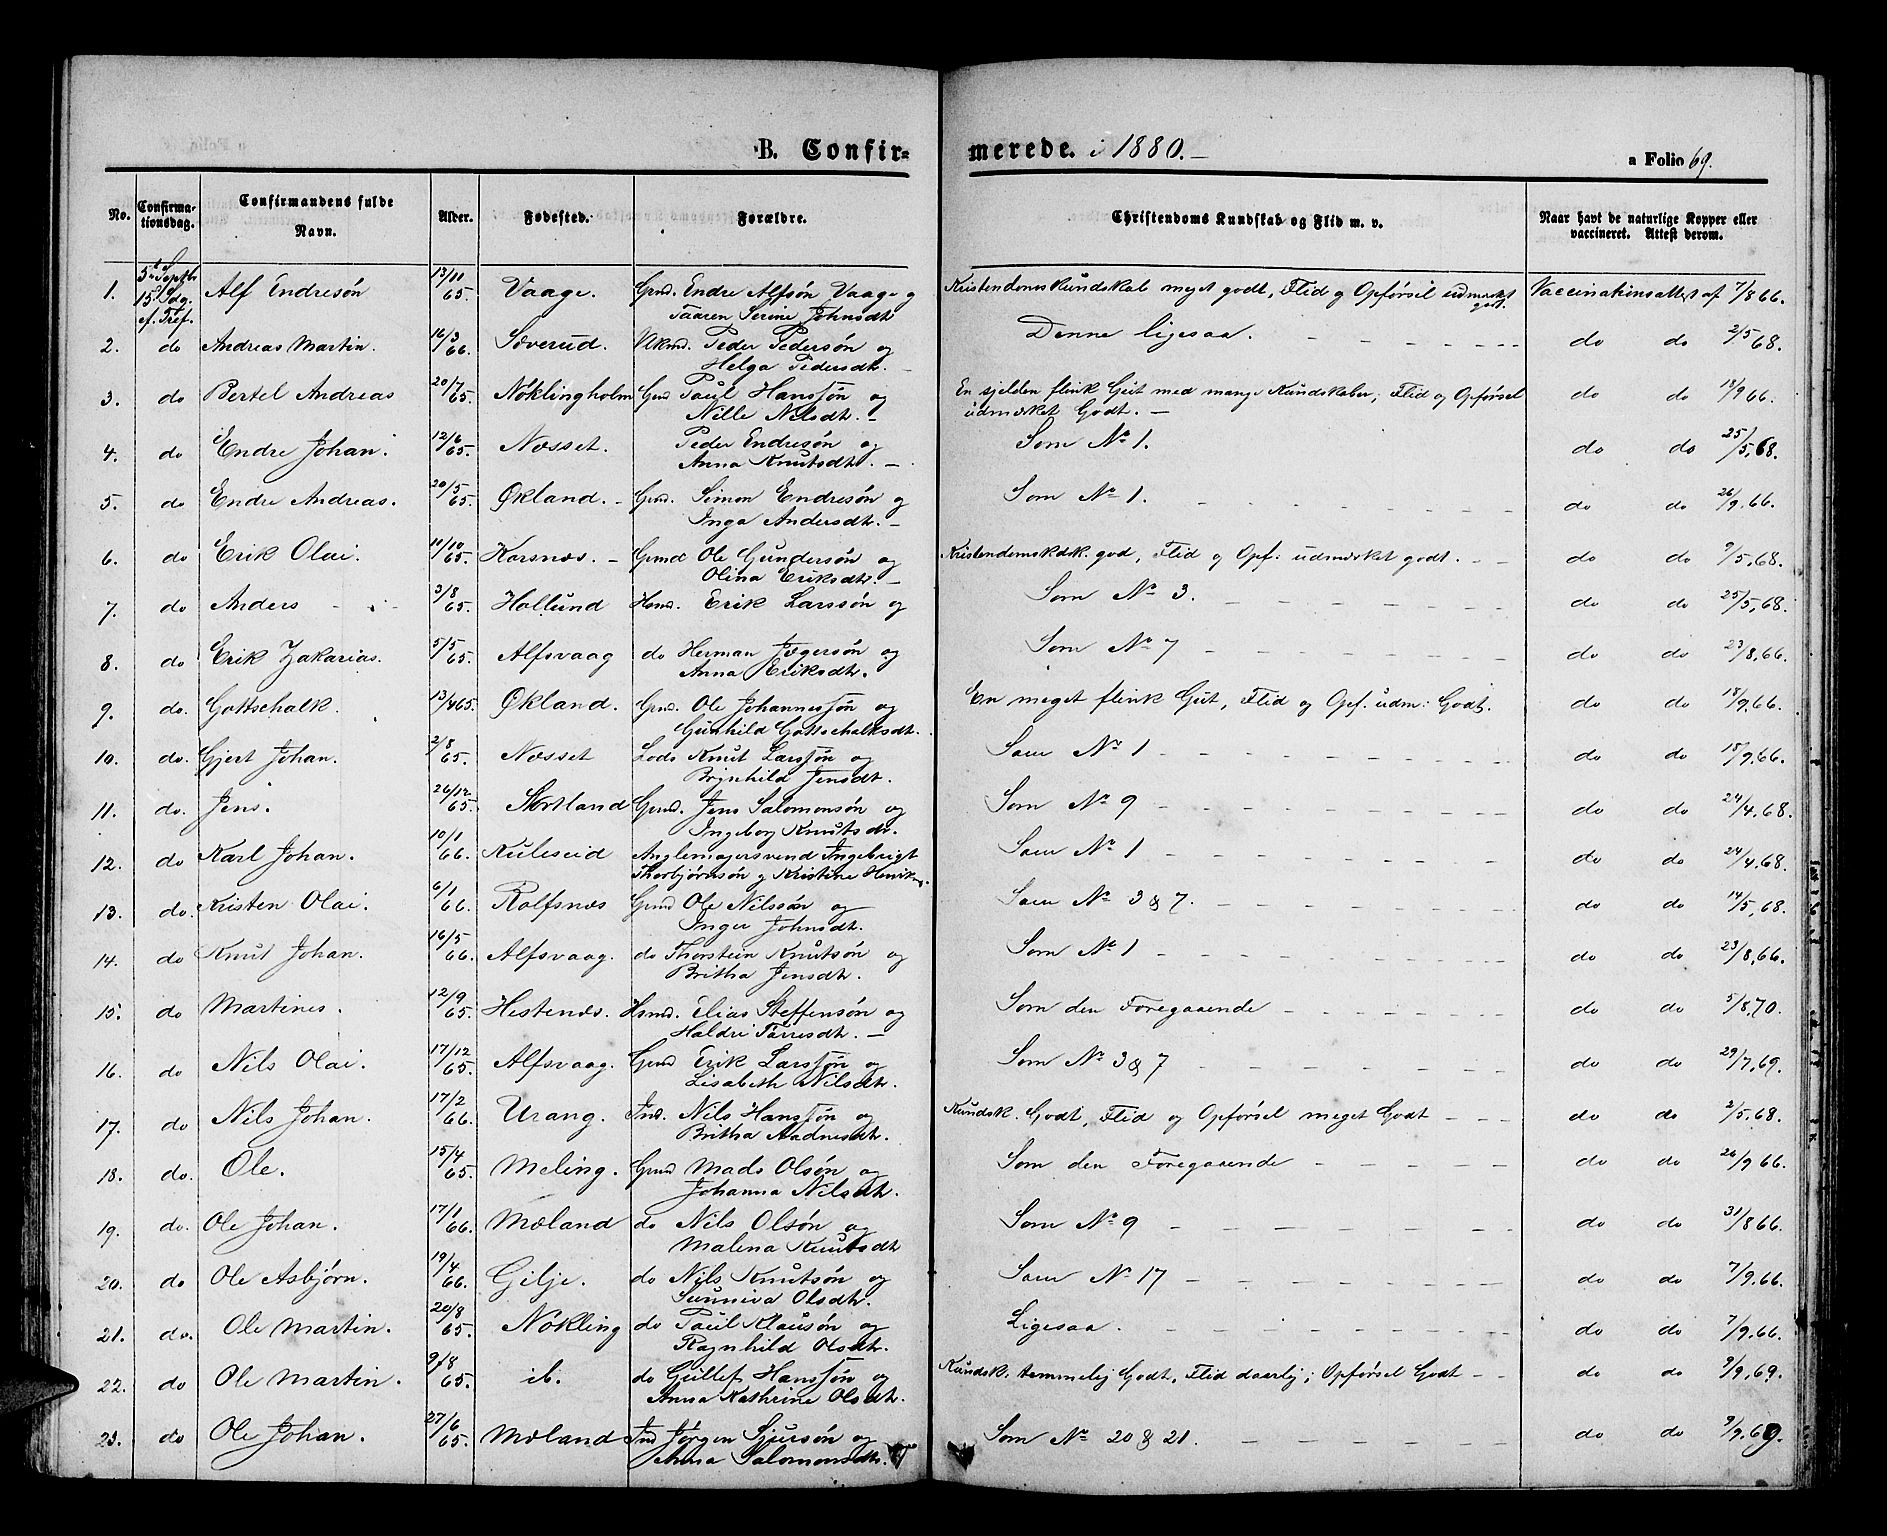 B. Confirmerede. i 1880.
a Folio 69.
No. Confirmationsdag. Confirmandens fulde Navn. Alder. Fødested. Forældre. Christendoms Kundskab og Flid m. v. Naar havt de naturlige Kopper eller vaccineret. Attest derom.
1. 5te Septbr 15 Sdg. ef. Tref. Alf Endresøn 13/10 65. Vaage. Grnd. Endre Alfsøn Vaage og Kristendomskundskab meget godt, Flid og Opførsel udmærket godt. Vaccinationsattest af 7/8 66.
Taaren Serine Johnsdt.
2. do Andreas Martin. 16/3 66. Sæverud. Peder Pedersøn og Denne ligesaa. do do 2/5 68.
Helga Pedersdt.
3. do Bertel Andreas 20/7 65. Nøklingholm Grnd Paul Hanssøn og En sjelden flink Gut med mange Kundskaber; Flid og Opførsel do do 18/9 66.
Nille Nilsdt. udmærket Godt.
4. do Endre Johan. 12/6 65. Næsset. Peder Endresøn og Som No 1. do do 25/5, 68.
Anna Knutsdt.
5. do Endre Andreas. 20/5 65. Økland. Grnd. Simon Endresøn og Som No 1. do do 26/9. 66.
Inga Andersdt.
6. do Erik Olai. 11/10 65. Korsnæs. Grnd Ole Gundersøn og Kristendomskdsk. god, Flid og Opf. udmærket godt. do do 9/5, 68.
Olina Eriksdt.
7. do Anders 3/8 65. Hollund Hsmd. Erik Larssøn og Som No 3. do do 25/5, 68.
8. do Erik Zakarias. 5/5 65. Alfsvaag do Herman Jægersøn og Som No 7 do do 23/8, 66.
Anna Eriksdt.
9. do. Gottschalk. 13/4 65. Økland. Grnd. Ole Johannessøn og En meget flink Gut, Flid og Opf. udm: Godt. do do 18/9, 66.
Gunhild Gottschalksdt.
10. do. Gjert Johan. 2/8 65. Næsset Lods Knut Larssøn og Som No 1 do do 18/9, 66.
Brynhild Jensdt.
11. do. Jens. 26/12 65. Stortland Grnd. Jens Salomonsøn og Som No 9 do do 24/4, 68.
Ingeborg Knutsdt.
12. do Karl Johan. 10/1 66. Kuleseid Anglemagersvend Ingebrigt Som No 1 do do 24/4, 68.
Thorbjørnsøn og Kristine Henriks.
13. do. Kristen Olai. 6/1 66. Rolfsnæs Grnd Ole Nilssøn og Som No 3 & 7. do do 14/5, 68.
Inger Johnsdt.
14. do Knut Johan. 16/5 66. Alfsvaag. do Thorstein Knutsøn og Som No 1 do do 23/8, 66.
Britha Jensdt.
15. do Martines. 12/9 65. Hestenæs. Hsmd. Elias Steffensøn og Som den Foregaaende do do 5/8, 70.
Haldri Torresdt.
16. do Nils Olai. 17/12 65. Alfsvaag. Grnd Erik Larssøn og Som No 3 & 7 do do 29/7, 69.
Lisabeth Nilsdt.
17. do Nils Johan. 17/2 66. Urang. Ind. Nils Hanssøn og Kundsk. Godt, Flid og Opførsel meget Godt do do 2/5, 68.
Britha Aadnesdt.
18. do. Ole. 15/4 65. Meling. Grnd Mads Olsøn og Som den Foregaaende do do 26/9 66.
Johanna Nilsdt.
19. do. Ole Johan. 17/1 66. Mæland do Nils Olsøn og Som No 9 do do 31/8 66.
Malena Knutsdt
20. do Ole Asbjørn. 19/4 66. Gilje. do Nils Knutsøn og Som No 17 do do 7/9. 66.
Sunniva Olsdt.
21. do. Ole Martin. 20/8 65. Nøkling do Paul Klausøn og Ligesaa. do do 7/9. 66.
Ragnhild Olsdt.
22. do Ole Martin. 9/8 65. ib. do Gullef Hanssøn og Kundsk. temmelig Godt, Flid daarlig; Opførsel Godt do do 9/9, 69.
Anna Kathrine Olsdt.
23. do Ole Johan. 27/6 65. Mæland Ind Jørgen Sjursøn og Som No 20 & 21. do do 9/9. 69.
Anna Salomonsdt.